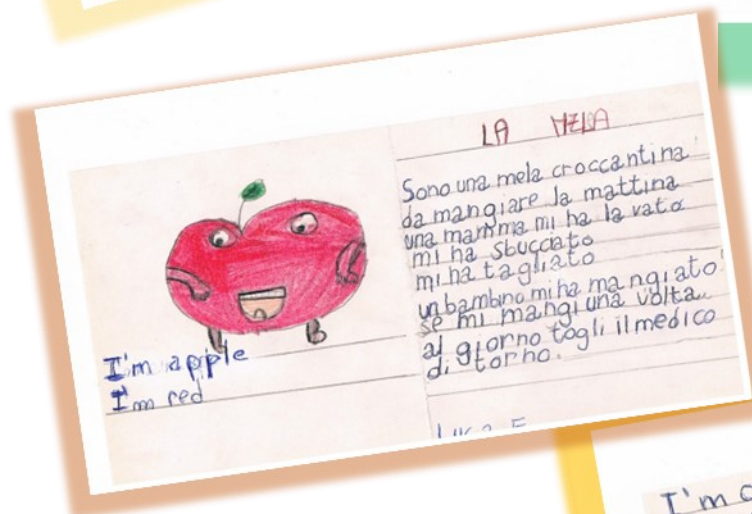 I'm apple
I'm red
LA MELA
Sono una mela croccantina
da mangiare la mattina
una mamma mi ha lavato
mi ha sbucciato
mi ha tagliato
un bambino mi ha mangiato
se mi mangi una volta
al giorno togli il medico
di torno.
I'm